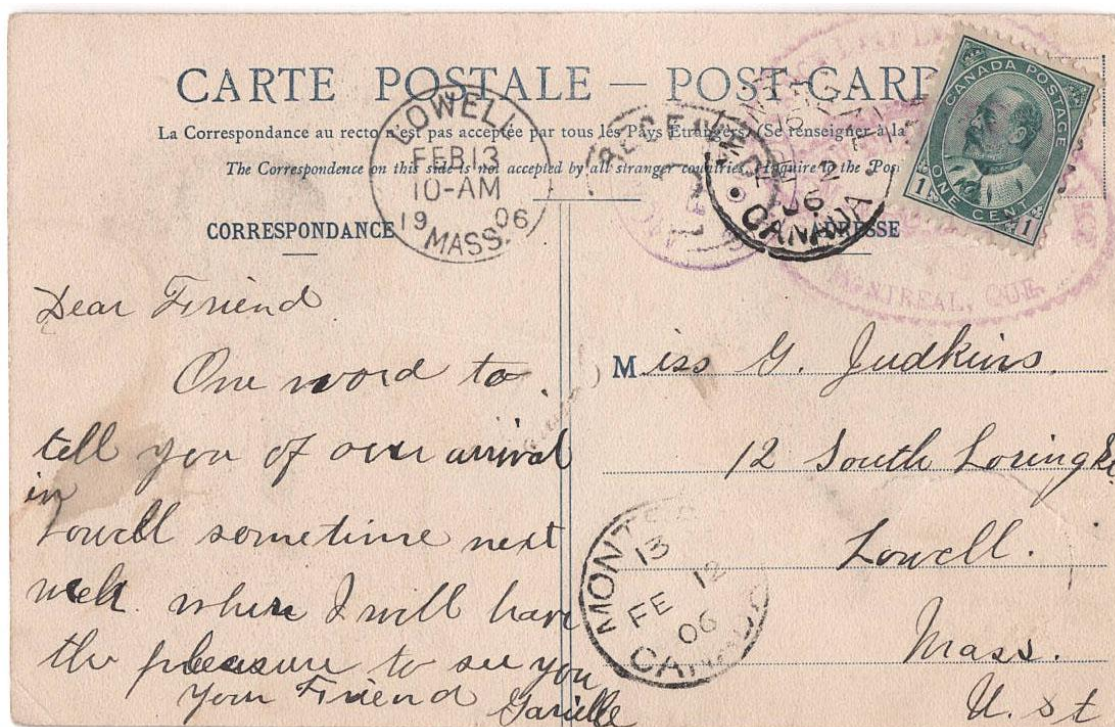 CARTE POSTALE — POST-CARD
La Correspondance au recto n'est pas acceptée par tous les Pays Etrangers (Se renseigner à la
The Correspondence on this side is not accepted by all stranger countries (Inquire to the Post
LOWELL
FEB 13
10-AM
19 06
MASS.
RECEIVED
CANADA
MONTREAL, QUE.
CANADA POSTAGE
1 ONE CENT 1
CORRESPONDANCE
ADRESSE
Dear Friend
One word to
tell you of our arrival
in
Lowell sometime next
week where I will have
the pleasure to see you
Your Friend
Miss G. Judkins.
12 South Loring
Lowell.
Mass.
U. St
MONT
13
FE 12
06
CANADA